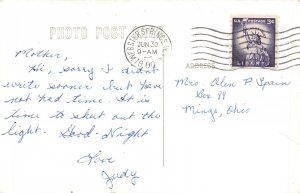 PHOTO POST
WEBSTER SPRINGS
JUN 30
9-AM
U.S. POSTAGE 3¢
LIBERTY
ADDRESS
Mother,
Hi, sorry I didnt
write sooner but have
not had time. It is
time to shut out the
light. Good-Night
Love
Judy
Mrs. Olen P. Spain
Box 99
Mingo, Ohio